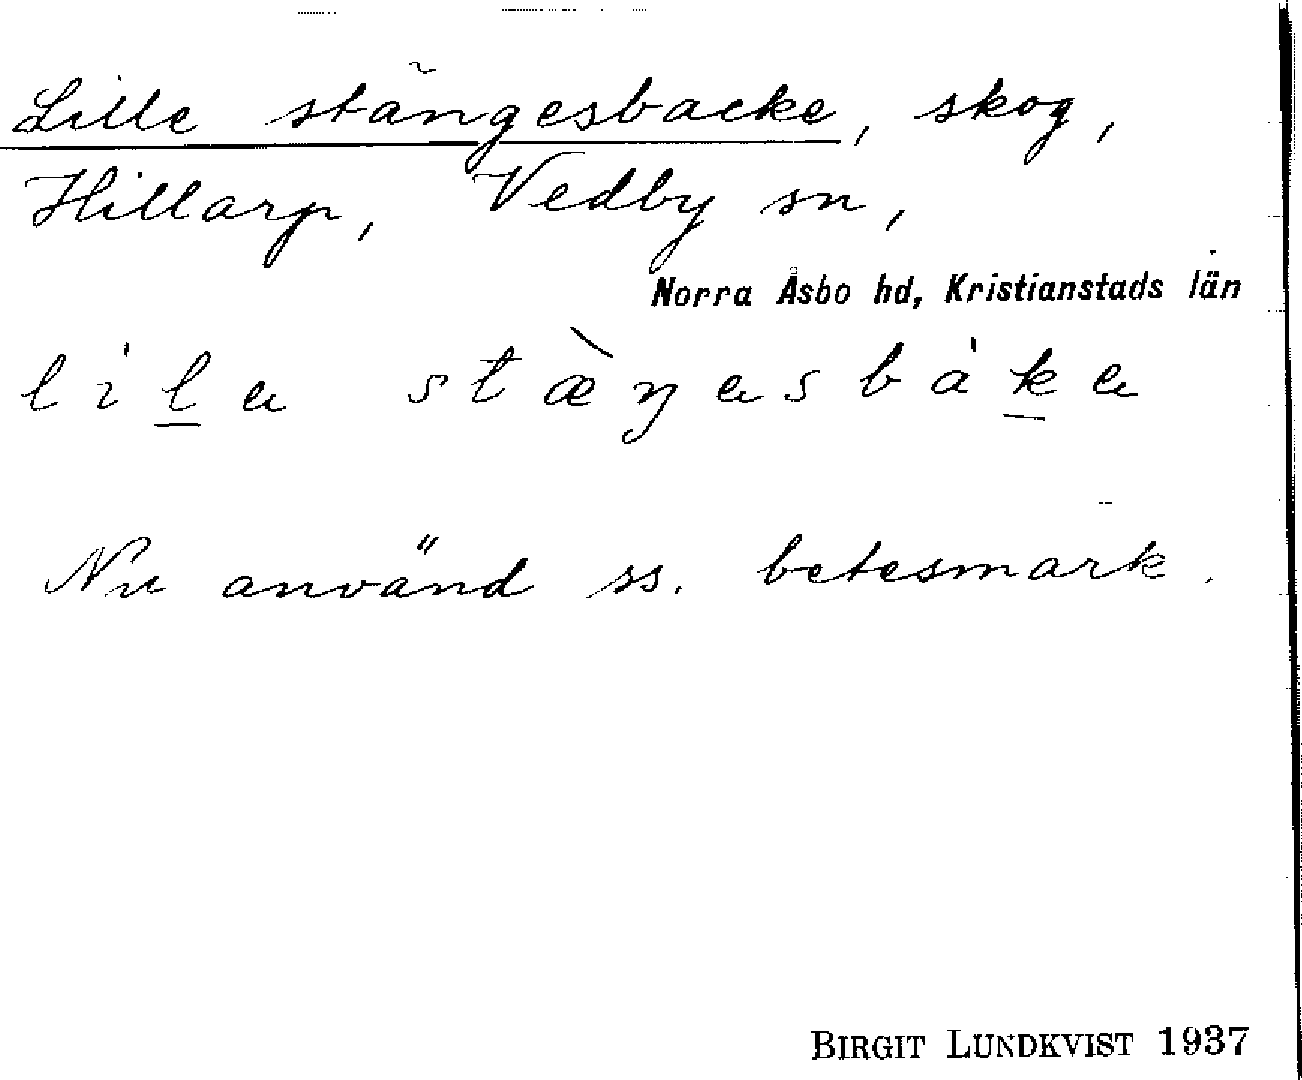 Lille stängesbacke, skog,
Hillarp, Vedby sn,
Norra Åsbo hd, Kristianstads län
lìl̲a stæ̀ŋasbàk̲a
Nu använd ss. betesmark.
BIRGIT LUNDKVIST 1937